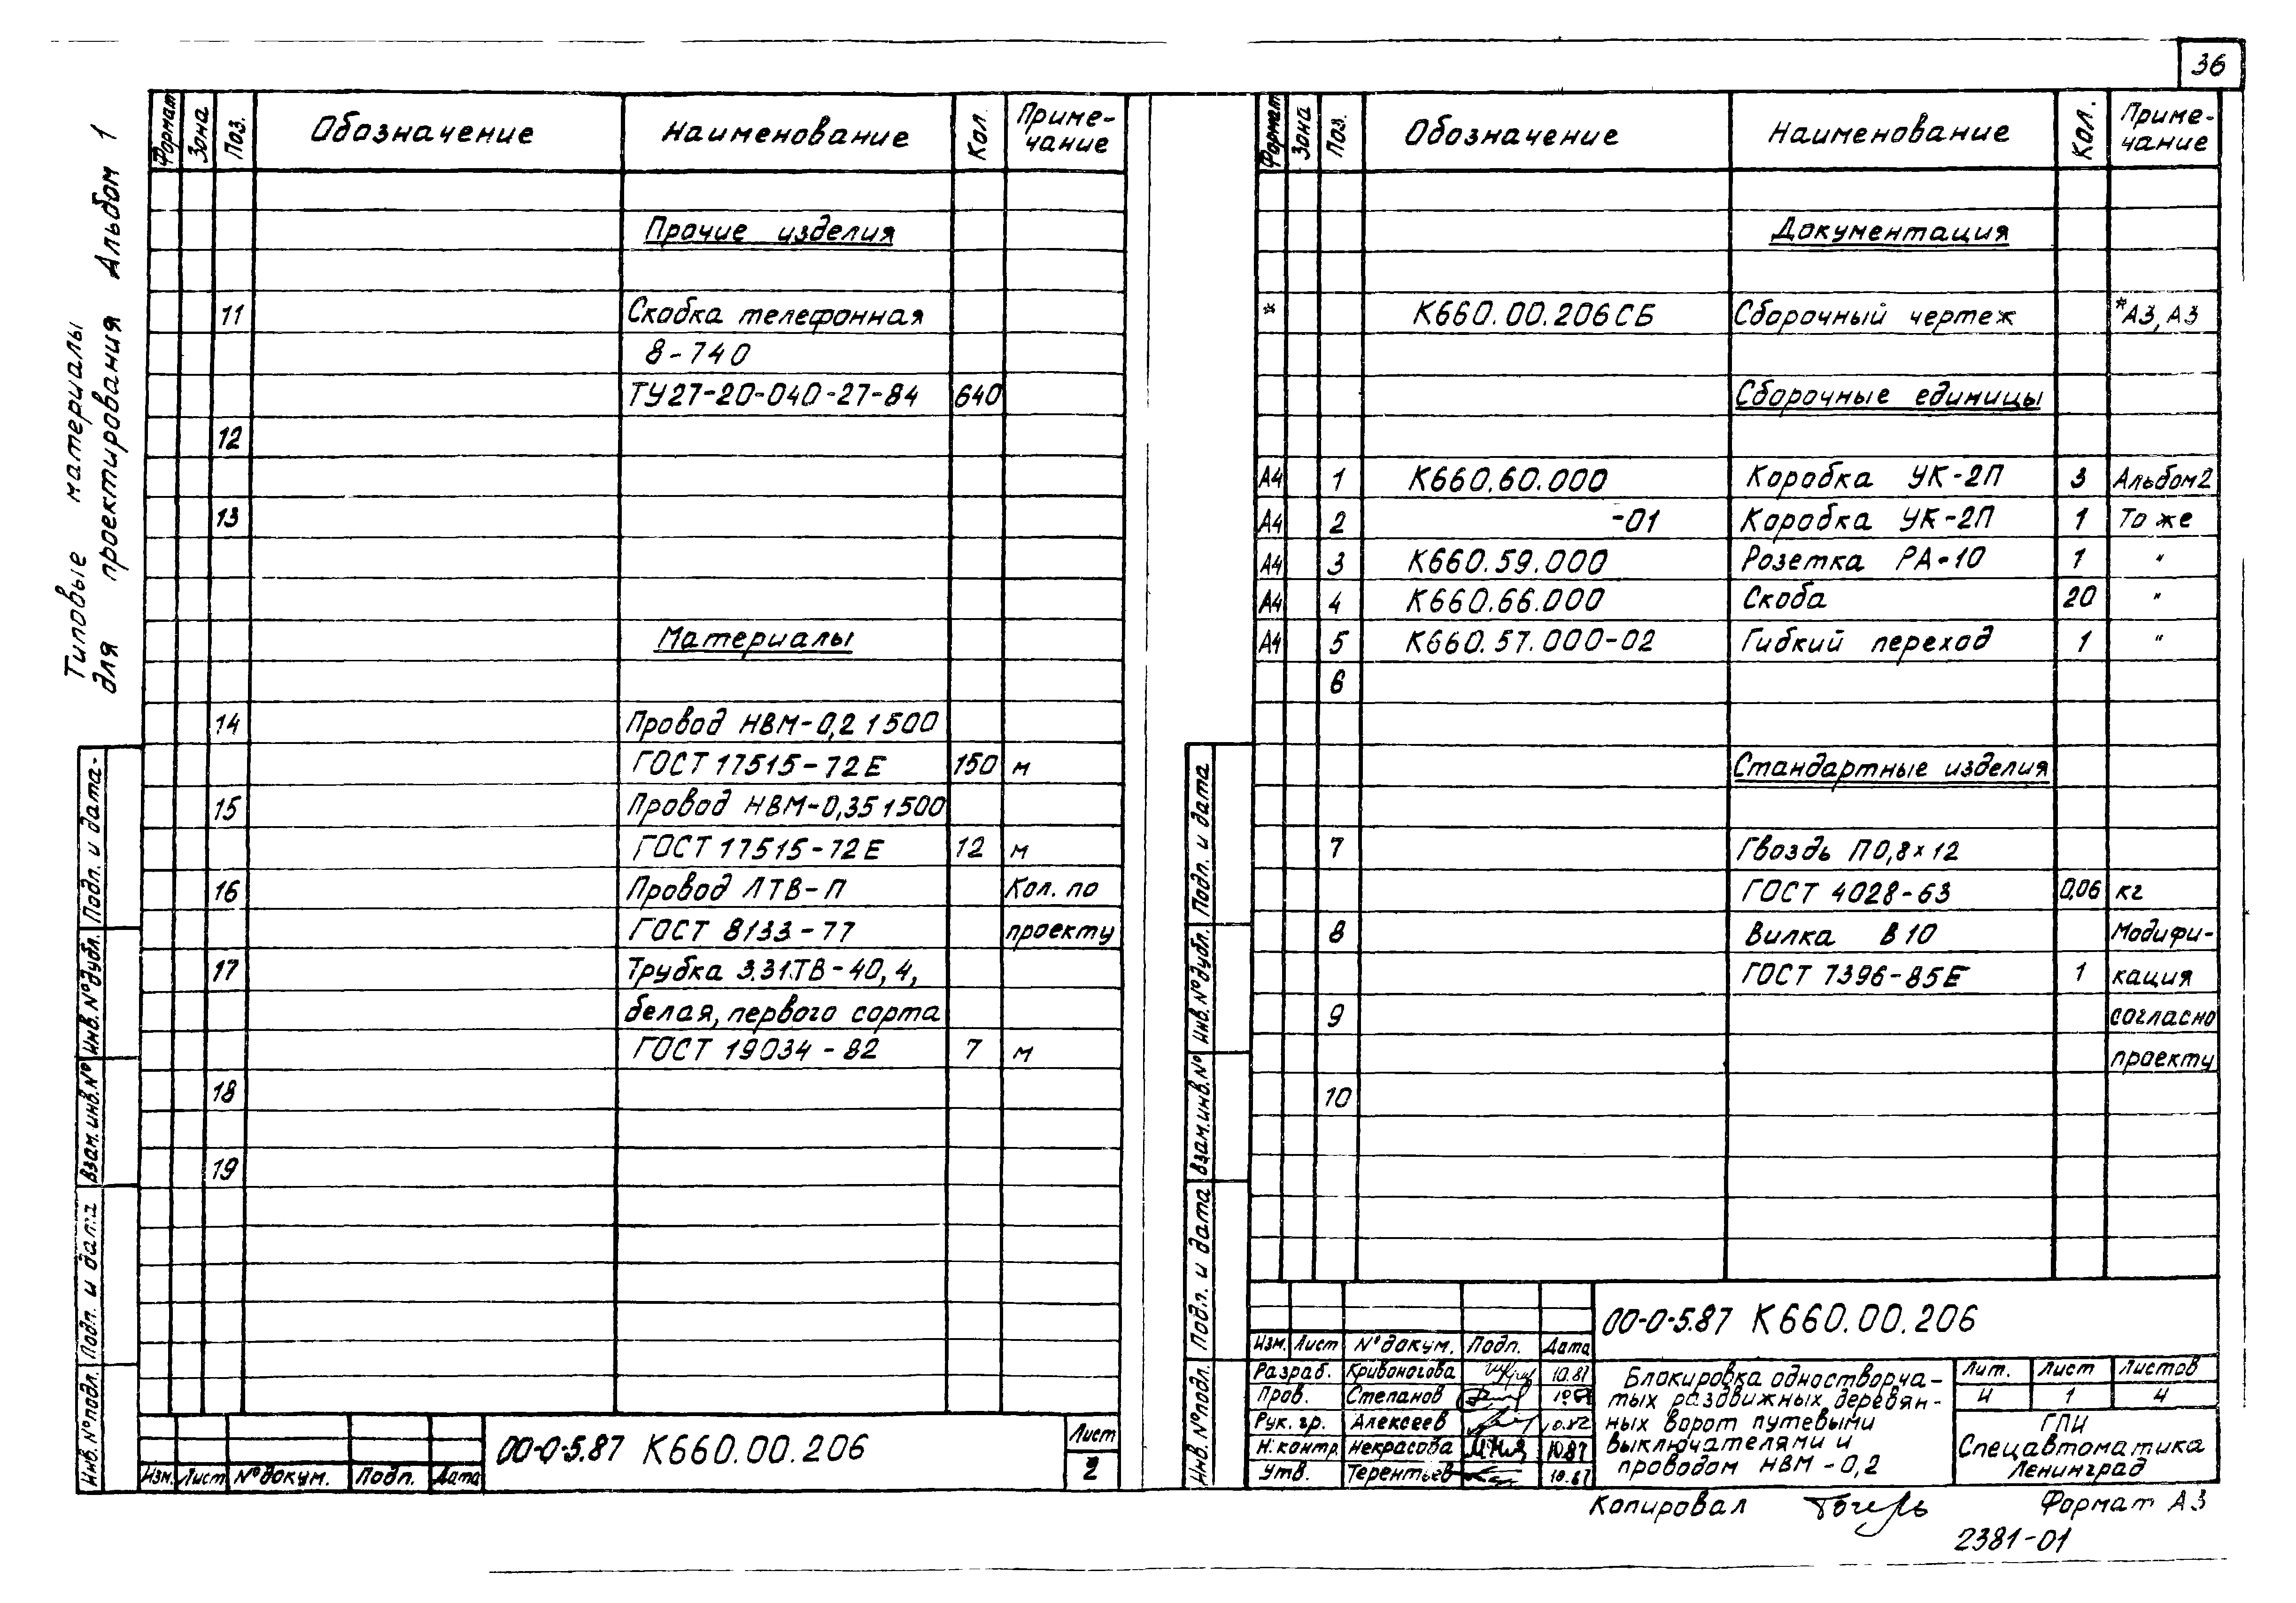 36
Типовые материалы
для проектирования Альбом 1
Формат Зона Поз. Обозначение Наименование Кол. Приме-
чание
Прочие изделия
11 Скобка телефонная
8-740
ТУ27-20-040-27-84 640
12
13
Материалы
14 Провод НВМ-0,2 1500
ГОСТ 17515-72Е 150 м
15 Провод НВМ-0,35 1500
ГОСТ 17515-72Е 12 м
16 Провод ЛТВ-П Кол. по
ГОСТ 8133-77 проекту
17 Трубка 3.31.ТВ-40, 4,
белая, первого сорта
ГОСТ 19034-82 7 м
18
19
Инв. № подл. Подп. и дата Взам. инв. № Инв. № дубл. Подп. и дата
Изм. Лист № докум. Подп. Дата
00-0-5.87 К660.00.206
Лист
2
Формат Зона Поз. Обозначение Наименование Кол. Приме-
чание
Документация
* К660.00.206СБ Сборочный чертеж *А3, А3
Сборочные единицы
А4 1 К660.60.000 Коробка УК-2П 3 Альбом 2
А4 2 -01 Коробка УК-2П 1 То же
А4 3 К660.59.000 Розетка РА-10 1 "
А4 4 К660.66.000 Скоба 20 "
А4 5 К660.57.000-02 Гибкий переход 1 "
6
Стандартные изделия
7 Гвоздь П 0,8×12
ГОСТ 4028-63 0,06 кг
8 Вилка В 10 Модифи-
ГОСТ 7396-85Е 1 кация
9 согласно
проекту
10
Инв. № подл. Подп. и дата Взам. инв. № Инв. № дубл. Подп. и дата
00-0-5.87 К660.00.206
Изм. Лист № докум. Подп. Дата
Разраб. Кривоногова 10.87
Пров. Степанов
Рук. гр. Алексеев
Н. контр. Некрасова 10.87
Утв. Терентьев 10.87
Блокировка одностворча-
тых раздвижных деревян-
ных ворот путевыми
выключателями и
проводом НВМ-0,2
Лит. Лист Листов
И 1 4
ГПИ
Спецавтоматика
Ленинград
Копировал Формат А3
2381-01